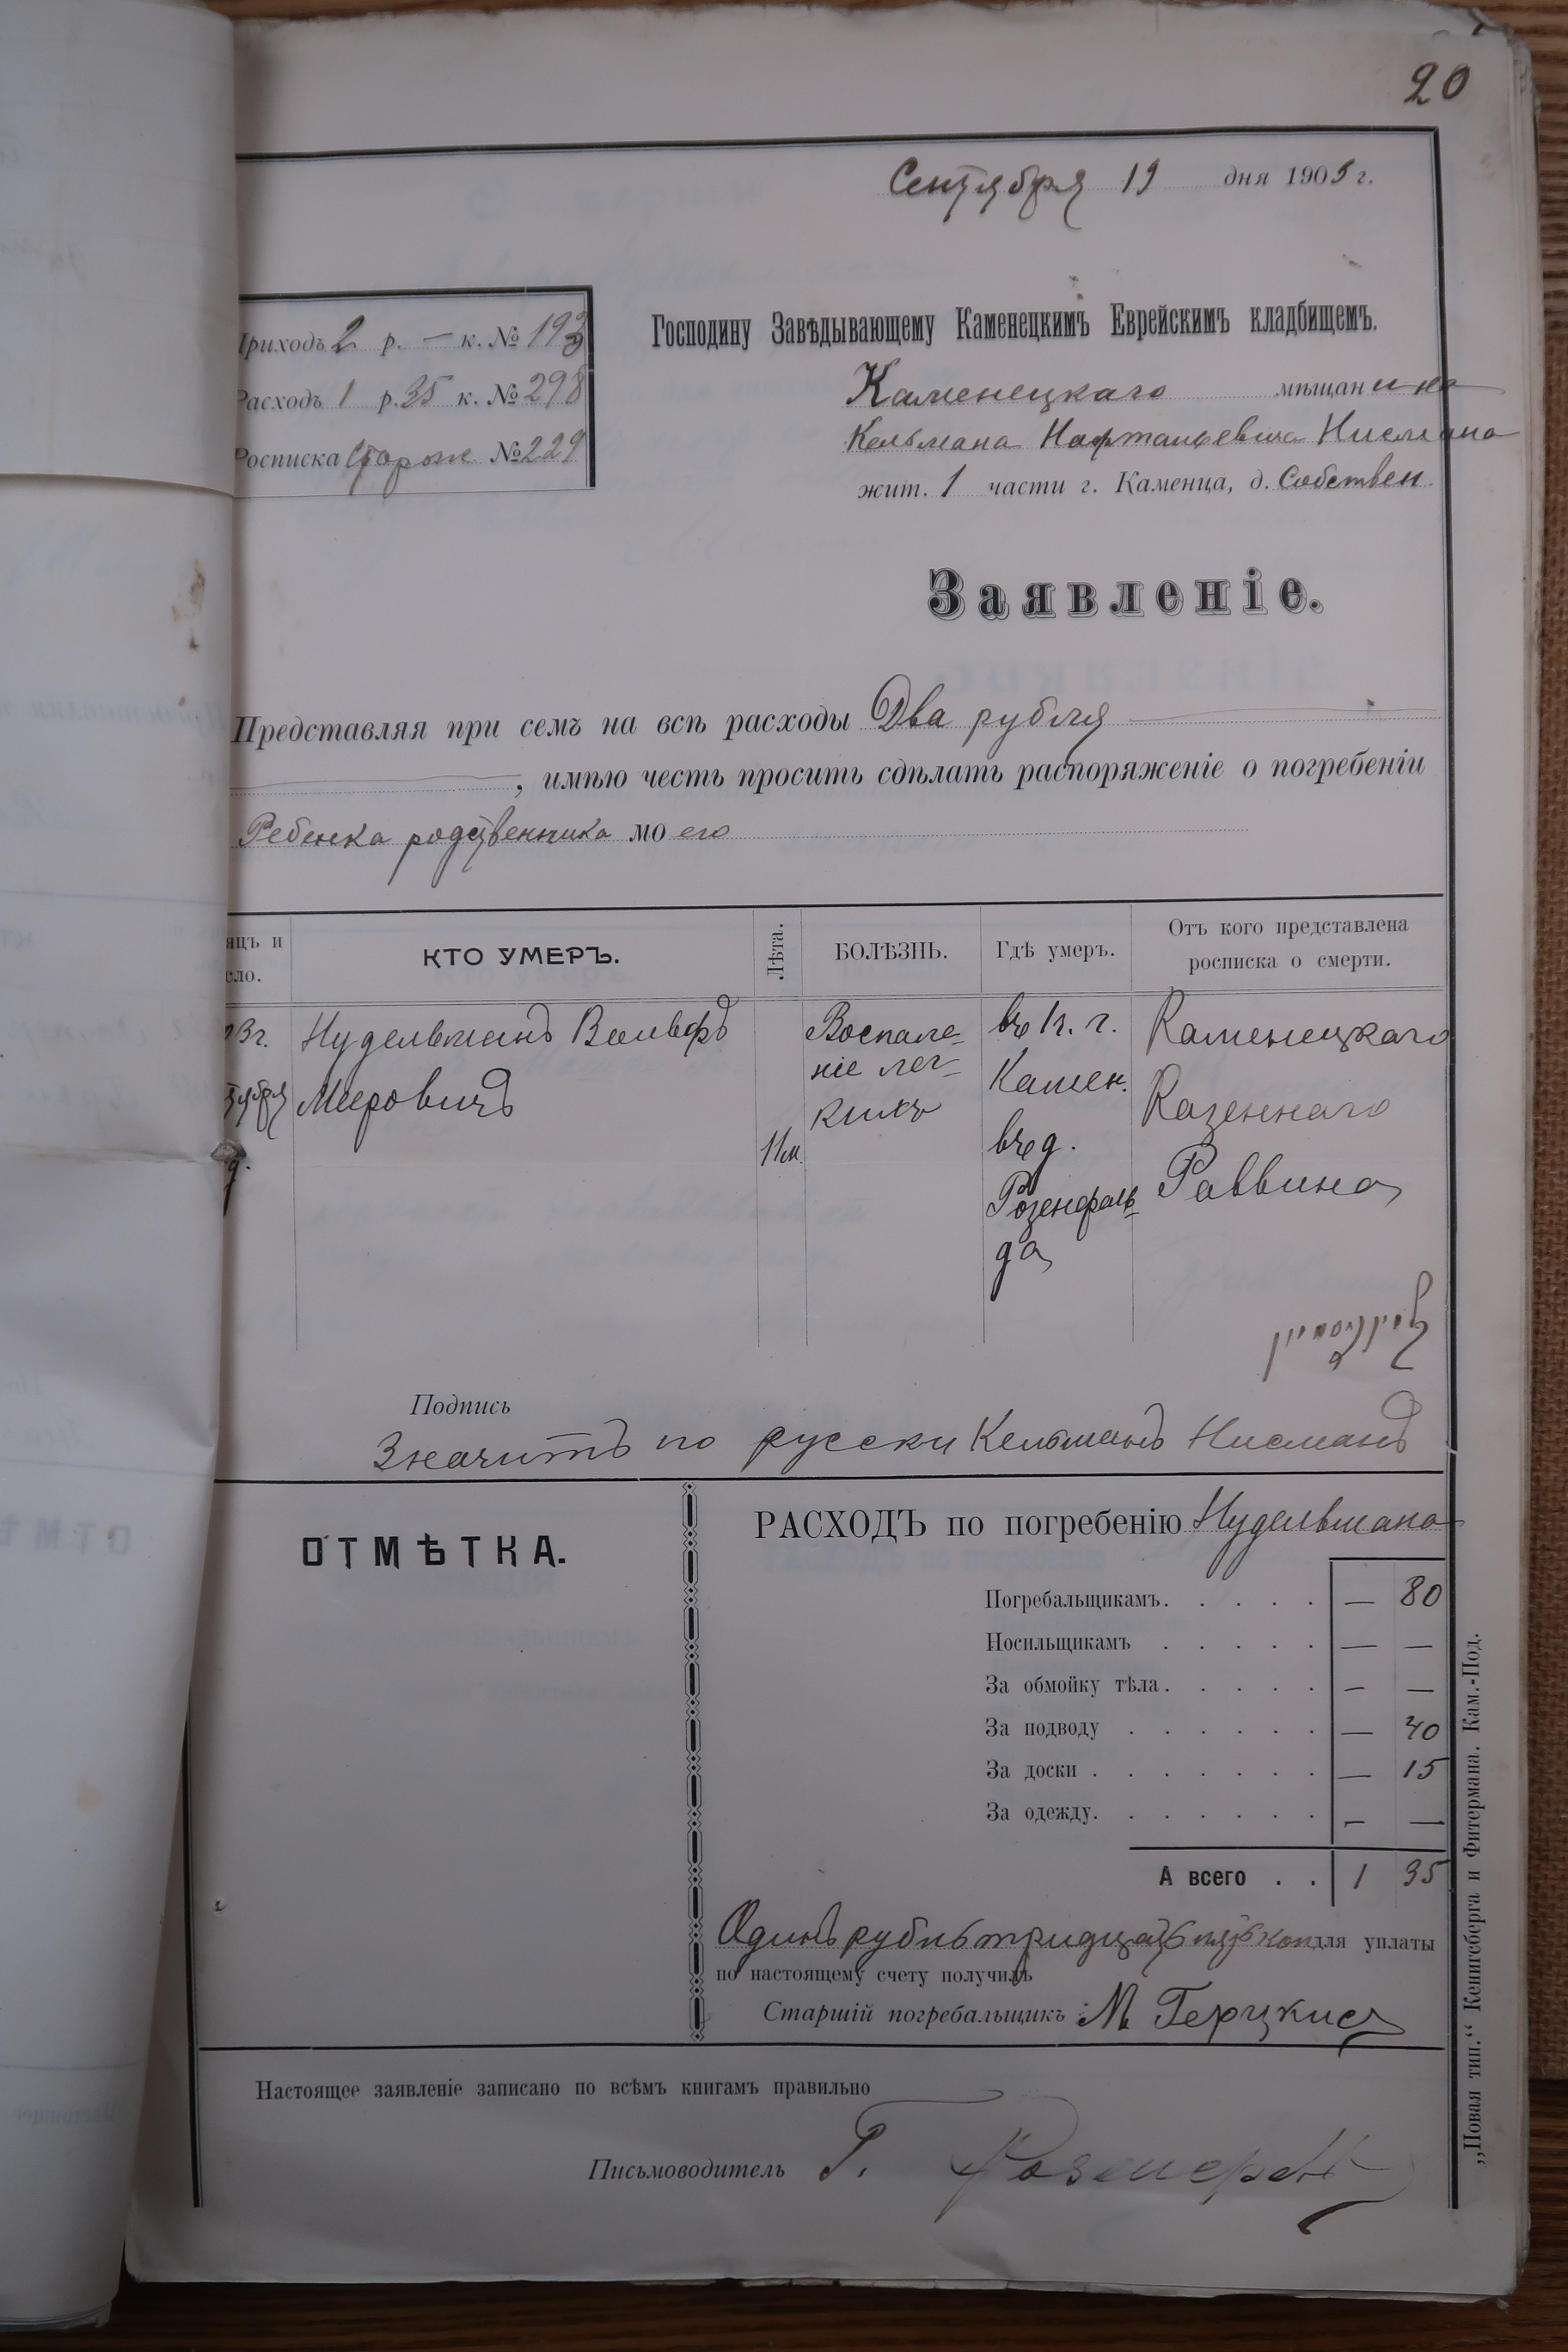 20
Сентября 19 дня 1903 г.
Приходъ 2 р. — к. № 193
Расходъ 1 р. 35 к. № 298
Росписка Сторож № 229
Господину Завѣдывающему Каменецкимъ Еврейскимъ кладбищемъ.
Каменецкаго мѣщанина
Кельмана Нафтальевича Нисмана
жит. 1 части г. Каменца, д. Собствен.
Заявленіе.
Представляя при семъ на всѣ расходы Два рубля
, имѣю честь просить сдѣлать распоряженіе о погребеніи
Ребенка родственника моего
яцъ и
сло.
КТО УМЕРЪ.
Лѣта.
БОЛѢЗНЬ.
Гдѣ умеръ.
Отъ кого представлена
росписка о смерти.
Нудельманъ Вольфъ
Меровичъ
11 м.
Воспале-
ніе лег-
кихъ
въ 1 ч. г.
Камен.
въ д.
Розенфель-
да
Каменецкаго
Казеннаго
Раввина
Подпись
Значитъ по русски Кельманъ Нисманъ
ОТМѢТКА.
РАСХОДЪ по погребенію Нудельмана
Погребальщикамъ. . . . . — 80
Носильщикамъ . . . . . — —
За обмойку тѣла. . . . . — —
За подводу . . . . . . — 40
За доски . . . . . . . — 15
За одежду. . . . . . . — —
А всего . . 1 35
Одинъ рубль тридцать пять коп для уплаты
по настоящему счету получилъ
Старшій погребальщикъ М Герцкис
Настоящее заявленіе записано по всѣмъ книгамъ правильно
Письмоводитель Г.
„Новая тип.“ Кенигсберга и Фитермана. Кам.-Под.